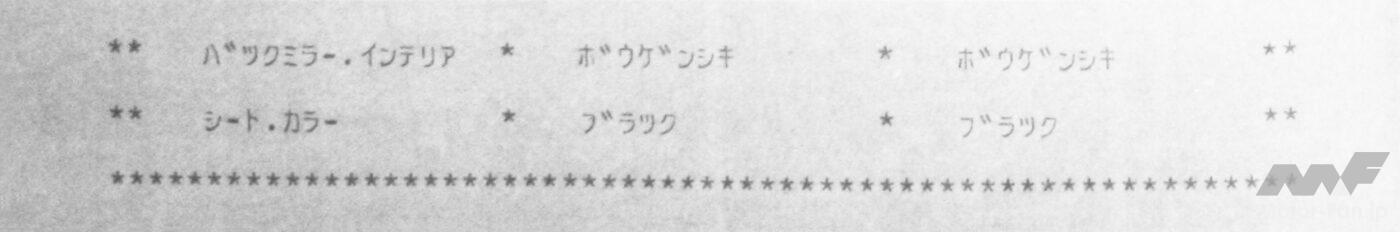 ** バツクミラー.インテリア * ボウゲンシキ * ボウゲンシキ **
** シード.カラー * ブラツク * ブラツク **
************************************************************
MF
Motor-Fan.jp